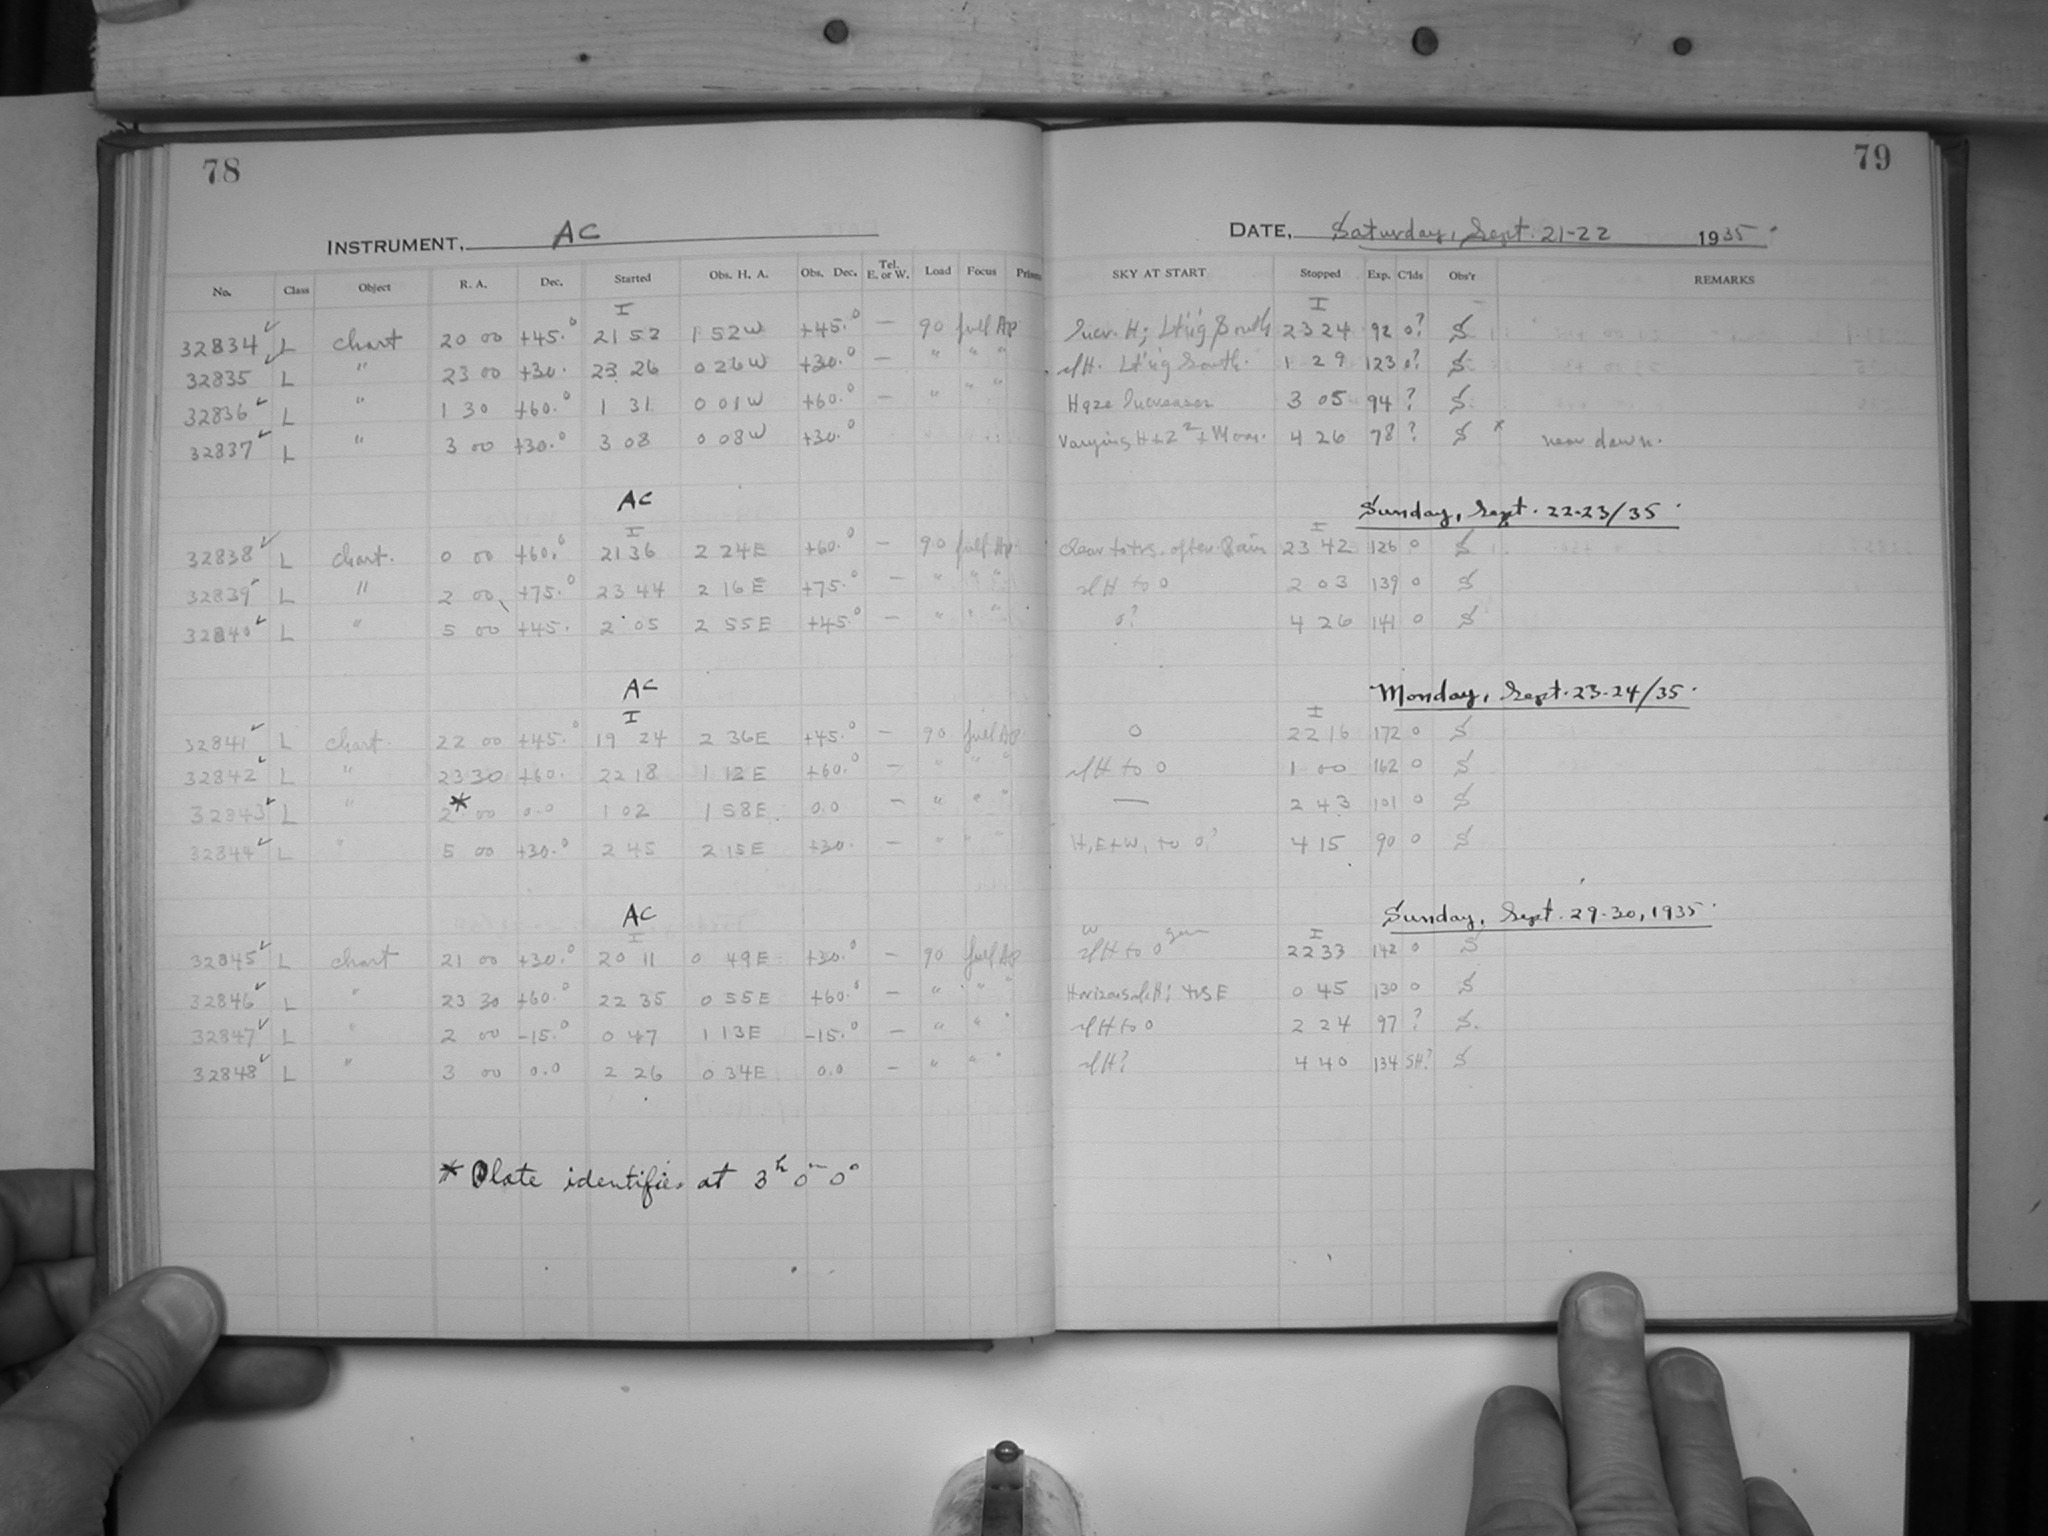 78
INSTRUMENT, AC
No. Class Object R. A. Dec. Started Obs. H. A. Obs. Dec. Tel. E. or W. Load Focus Prism
I
32834 ✓ L chart 20 00 +45.° 21 52 1 52W +45.° — 90 full Ap
32835 ✓ L " 23 00 +30. 23 26 0 26W +30.° — " " "
32836 ✓ L " 1 30 +60.° 1 31 0 01W +60.° — " " "
32837 ✓ L " 3 00 +30.° 3 08 0 08W +30.°
AC
I
32838 ✓ L chart. 0 00 +60.° 21 36 2 24E +60.° — 90 full Ap.
32839 ✓ L " 2 00 +75.° 23 44 2 16E +75.° — " " "
32840 ✓ L " 5 00 +45. 2 05 2 55E +45.° — " " "
AC
I
32841 ✓ L chart. 22 00 +45.° 19 24 2 36E +45.° — 90 full Ap
32842 ✓ L " 23 30 +60. 22 18 1 12E +60.° — " " "
32843 ✓ L " 2* 00 0.0 1 02 1 58E 0.0 — " " "
32844 ✓ L " 5 00 +30.° 2 45 2 15E +30. — " " "
AC
I
32845 ✓ L chart 21 00 +30.° 20 11 0 49E +30.° — 90 full Ap
32846 ✓ L " 23 30 +60.° 22 35 0 55E +60.° — " " "
32847 ✓ L " 2 00 -15.° 0 47 1 13E -15.° — " " "
32848 ✓ L " 3 00 0.0 2 26 0 34E 0.0 — " " "
* Plate identifies at 3h 0m 0°
79
DATE, Saturday, Sept. 21-22 1935.
SKY AT START Stopped Exp. C'lds Obs'r REMARKS
I
H; Lt'ig South 23 24 92 0? S
slH. Lt'ig South. 1 29 123 0? S
Haze Increases 3 05 94 ? S
Varying H+Z² + Moon. 4 26 78 ? S * near dawn.
Sunday, Sept. 22-23/35.
I
Clear to trs. after Rain 23 42 126 0 S
slH to 0 2 03 139 0 S
0? 4 26 141 0 S
Monday, Sept. 23-24/35.
I
0 22 16 172 0 S
slH to 0 1 00 162 0 S
— 2 43 101 0 S
H, E+W, to 0? 4 15 90 0 S
Sunday, Sept. 29-30, 1935.
I
slH to 0 22 33 142 0 S
Horizon slH; 0 45 130 0 S
slH to 0 2 24 97 ? S.
slH? 4 40 134 SH? S